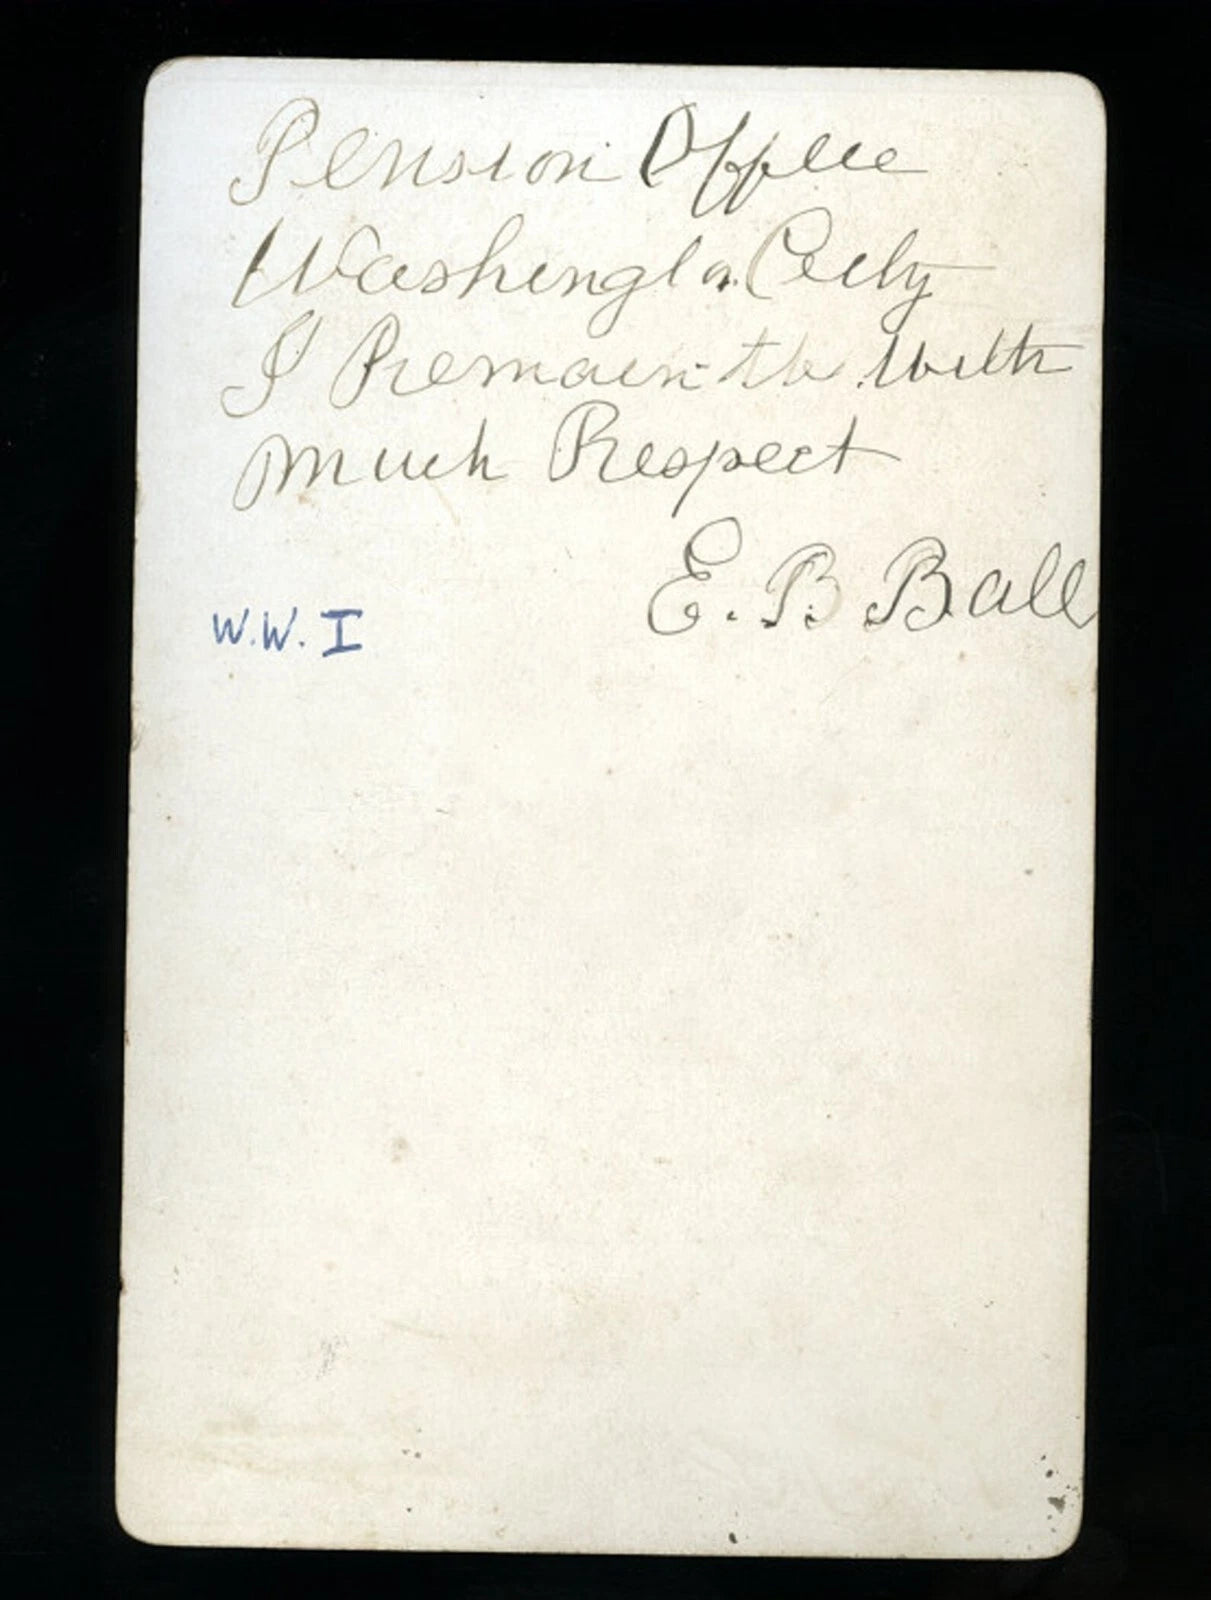 Pension Office
Washington City
I Remain to with
much Respect
E. B Ball
W.W. I